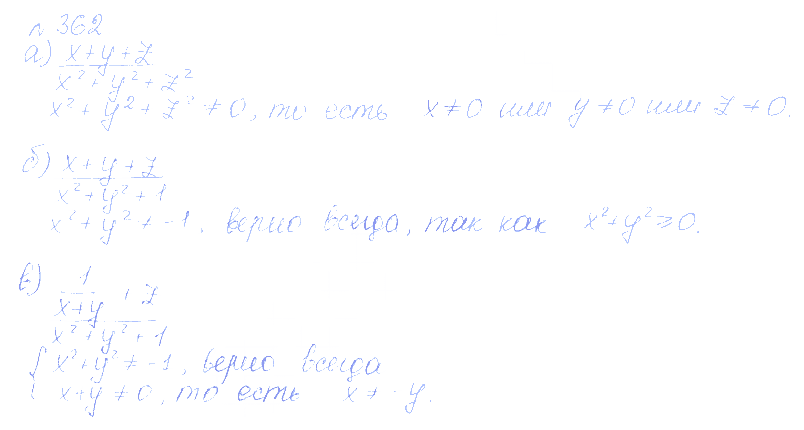 № 362
а) (x+y+z)/(x²+y²+z²)
x²+y²+z²≠0, то есть x≠0 или y≠0 или z≠0.
б) (x+y+z)/(x²+y²+1)
x²+y²≠-1. верно всегда, так как x²+y²≥0.
в) (1/(x+y)+z)/(x²+y²+1)
{ x²+y²≠-1, верно всегда
x+y≠0, то есть x≠-y.